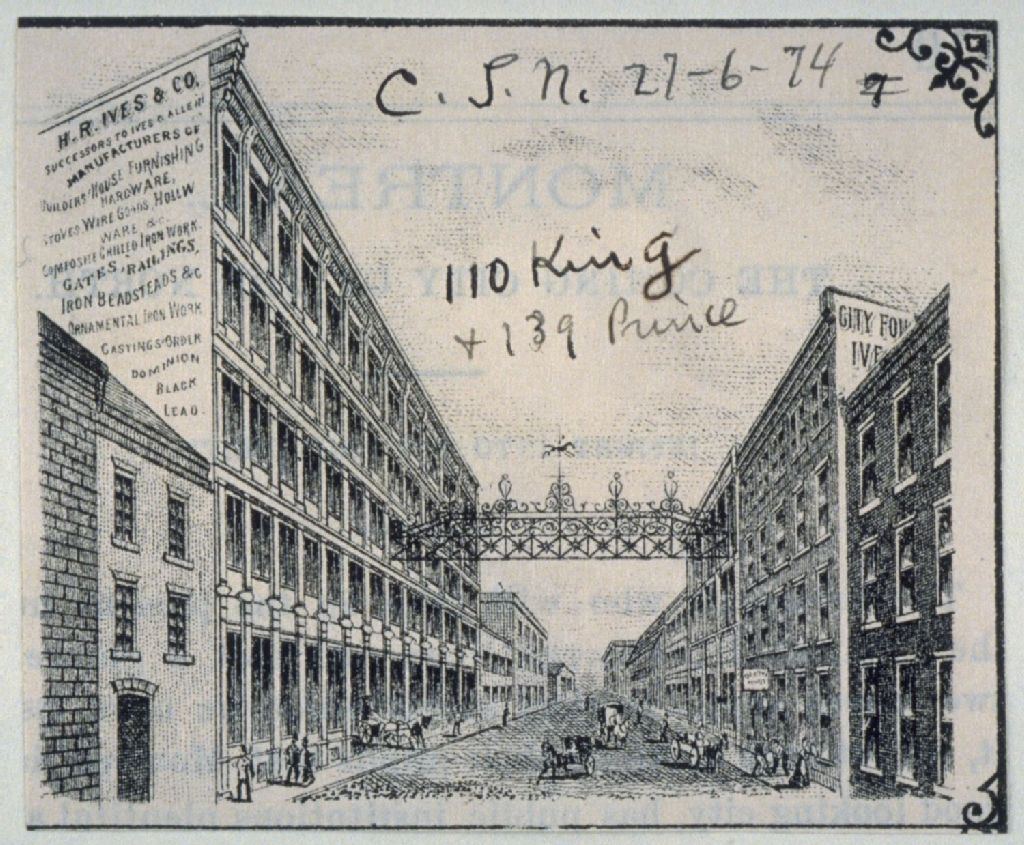 C. S. N. 27-6-74
H. R. IVES & CO,
SUCCESSORS TO IVES & ALLEN
MANUFACTURERS OF
BUILDERS & HOUSE FURNISHING
HARDWARE,
STOVES WIRE GOODS, HOLLW
WARE &c.
COMPOSITE CHILLED IRON WORK.
GATES, RAILINGS,
IRON BEADSTEADS &c
ORNAMENTAL IRON WORK
CASTINGS ORDER
DOMINION
BLACK
LEAD.
110 King
+ 139 Prince
CITY FOU
IVE